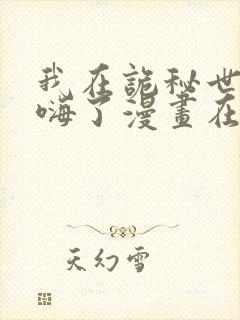 我在詭秘世
嗨了漫畫在
天幻雪